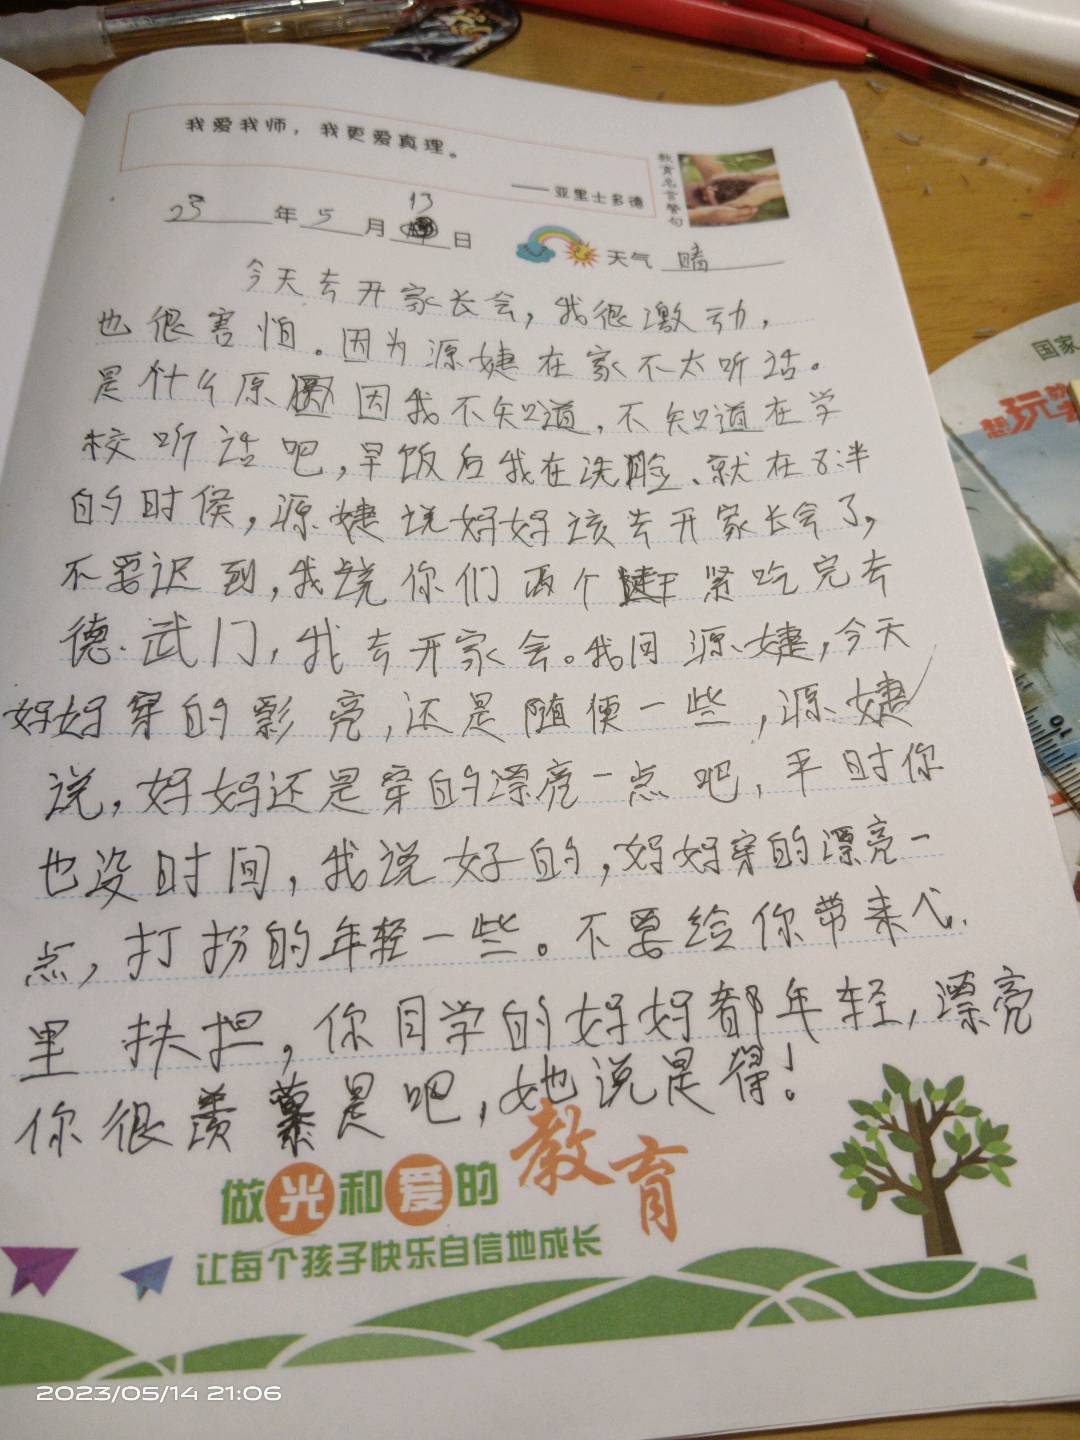 我爱我师，我更爱真理。
——亚里士多德
教育名言警句
23年5月13日
天气 晴
今天去开家长会，我很激动，
也很害怕。因为源婕在家不太听话。
是什么原因我不知道，不知道在学
校听话吧，早饭后我在洗脸、就在8:半
的时侯，源婕说妈妈该去开家长会了，
不要迟到，我说你们两个赶紧吃完去
德武门，我去开家会。我问源婕，今天
妈妈穿的影亮，还是随便一些，源婕
说，妈妈还是穿的漂亮一点吧，平时你
也没时间，我说好的，妈妈穿的漂亮一
点，打扮的年轻一些。不要给你带来心
里扶担，你同学的妈妈都年轻，漂亮
你很羡慕是吧，她说是得！
做光和爱的教育
让每个孩子快乐自信地成长
国家
玩
2023/05/14 21:06